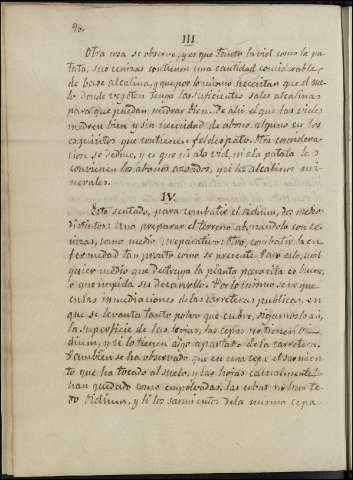 96.
III.
Otra cosa se observa, y es que tanto la vid como la pa-
tata, sus cenizas contienen una cantidad considerable
de base alcalina, y que por lo mismo necesitan que el sue-
lo donde vegeten tenga las suficientes sales alcalinas
para que puedan medrar bien. De ahi el que las vides
medren bien y sin necesidad de abono alguno en los
esquistos que contienen feldespato. Otra considera-
cion se deduce, y es que ni á la vid, ni á la patata les
convienen los abonos azoados, y si los alcalinos mi-
nerales.
IV.
Esto sentado, para combatir el oidium, dos medios
distintos: Uno preparar el terreno abonandolo con ce-
nizas, como medio preparativo: Otro, combatir la en-
fermedad tan pronto como se presente. Para esto, cual-
quier medio que destruya la planta parasita es bueno,
o que impida su desarrollo. Por lo mismo se ve que
en las inmediaciones de las carreteras publicas, en
que se levanta tanto polvo que cubre, digamoslo asi,
la superficie de las hojas, las cepas no tienen Oi-
dium, y si lo tienen algo apartado de la carretera.
Tambien se ha observado que en una cepa el sarmien-
to, que ha tocado al suelo, y las hojas casualmente
han quedado como empolvadas, las uvas no han te-
do Oidium, y si los sarmientos de la misma cepa